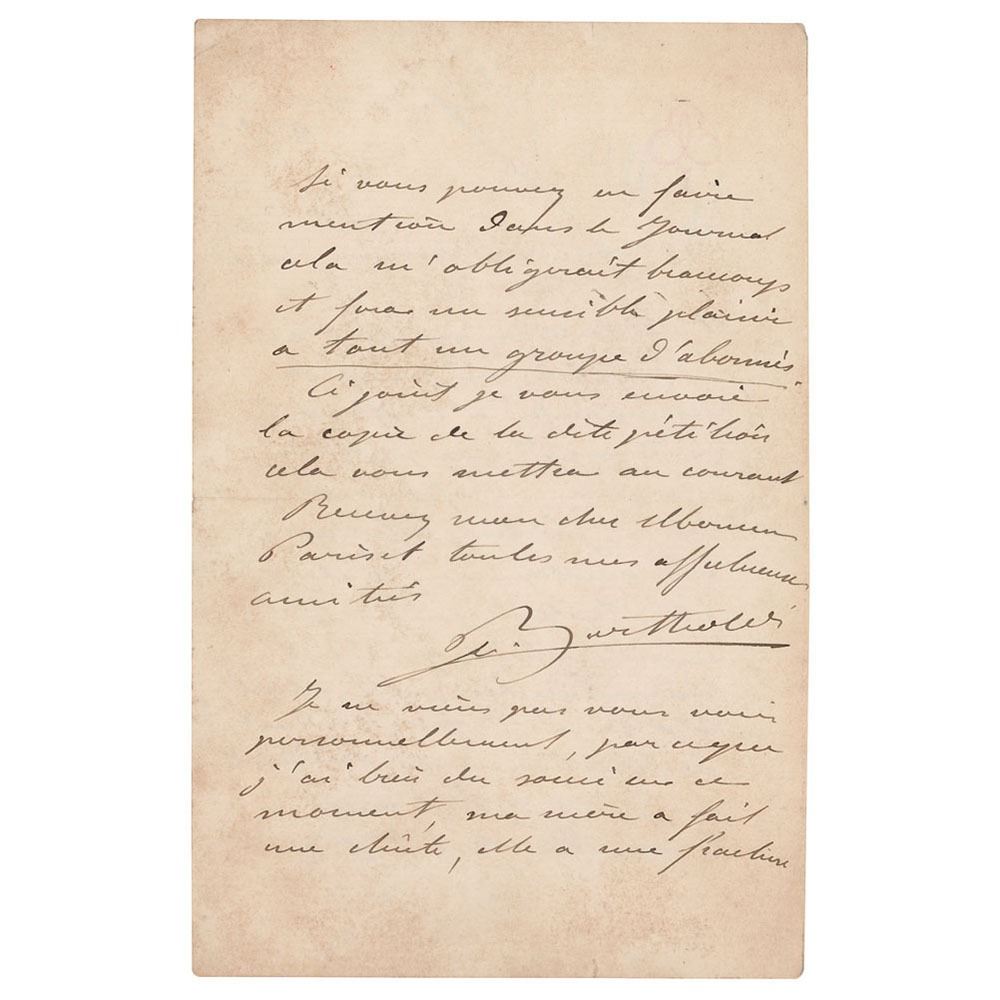 Si vous pouvez en faire
mention dans le Journal
cela m'obligerait beaucoup
et fera un sensible plaisir
a tout un groupe d'abonnés
Ci joint je vous envoie
la copie de la dite pétition
cela vous mettra au courant
Recevez mon cher
et toutes mes affectueuses
amitiés
Bartholdi
Je ne viens pas vous voir
personnellement, parceque
j'ai bien du souci en ce
moment, ma mère a fait
une chûte, elle a une fracture